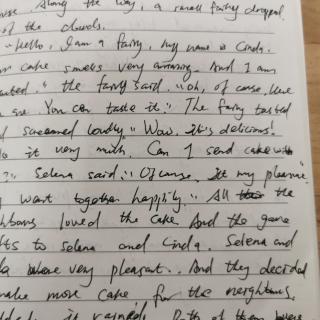 Along the way, a small fairy dropped
of the clouds.
"Hello, I am a fairy, My name is Cinda.
cake smells very amazing. And I am
" the fairy said. "Oh, of course, Here
are. You can taste it." The fairy tasted
screamed loudly: "Wow, it's delicious!
it very much. Can I send cake with
?" Selena said: "Of course. It my pleasure
want together happily." All the
loved the cake. And the game
to Selena and Cinda. Selena and
were very pleasant. And they decided
make more cake for the neighbours.
it rained. Both of them